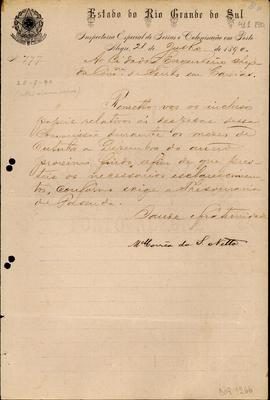 Estado do Rio Grande do Sul
Inspectoria Especial de Terras e Colonisação em Porto
Alegre, 21 de Junho de 1890.
Nº 777
Ao Cidadão Engenheiro Chefe
da Com. de Terras em Caxias.
Remetto-vos os inclusos
papeis relativos ás despezas dessa
Commissão durante os mezes de
Outubro a Dezembro do anno
proximo findo, afim de que pres-
teis os necessarios esclarecimen-
tos, conforme exige a Thesouraria
de Fazenda.
Saude e Fraternidade
Mel Corrêa da S. Netto